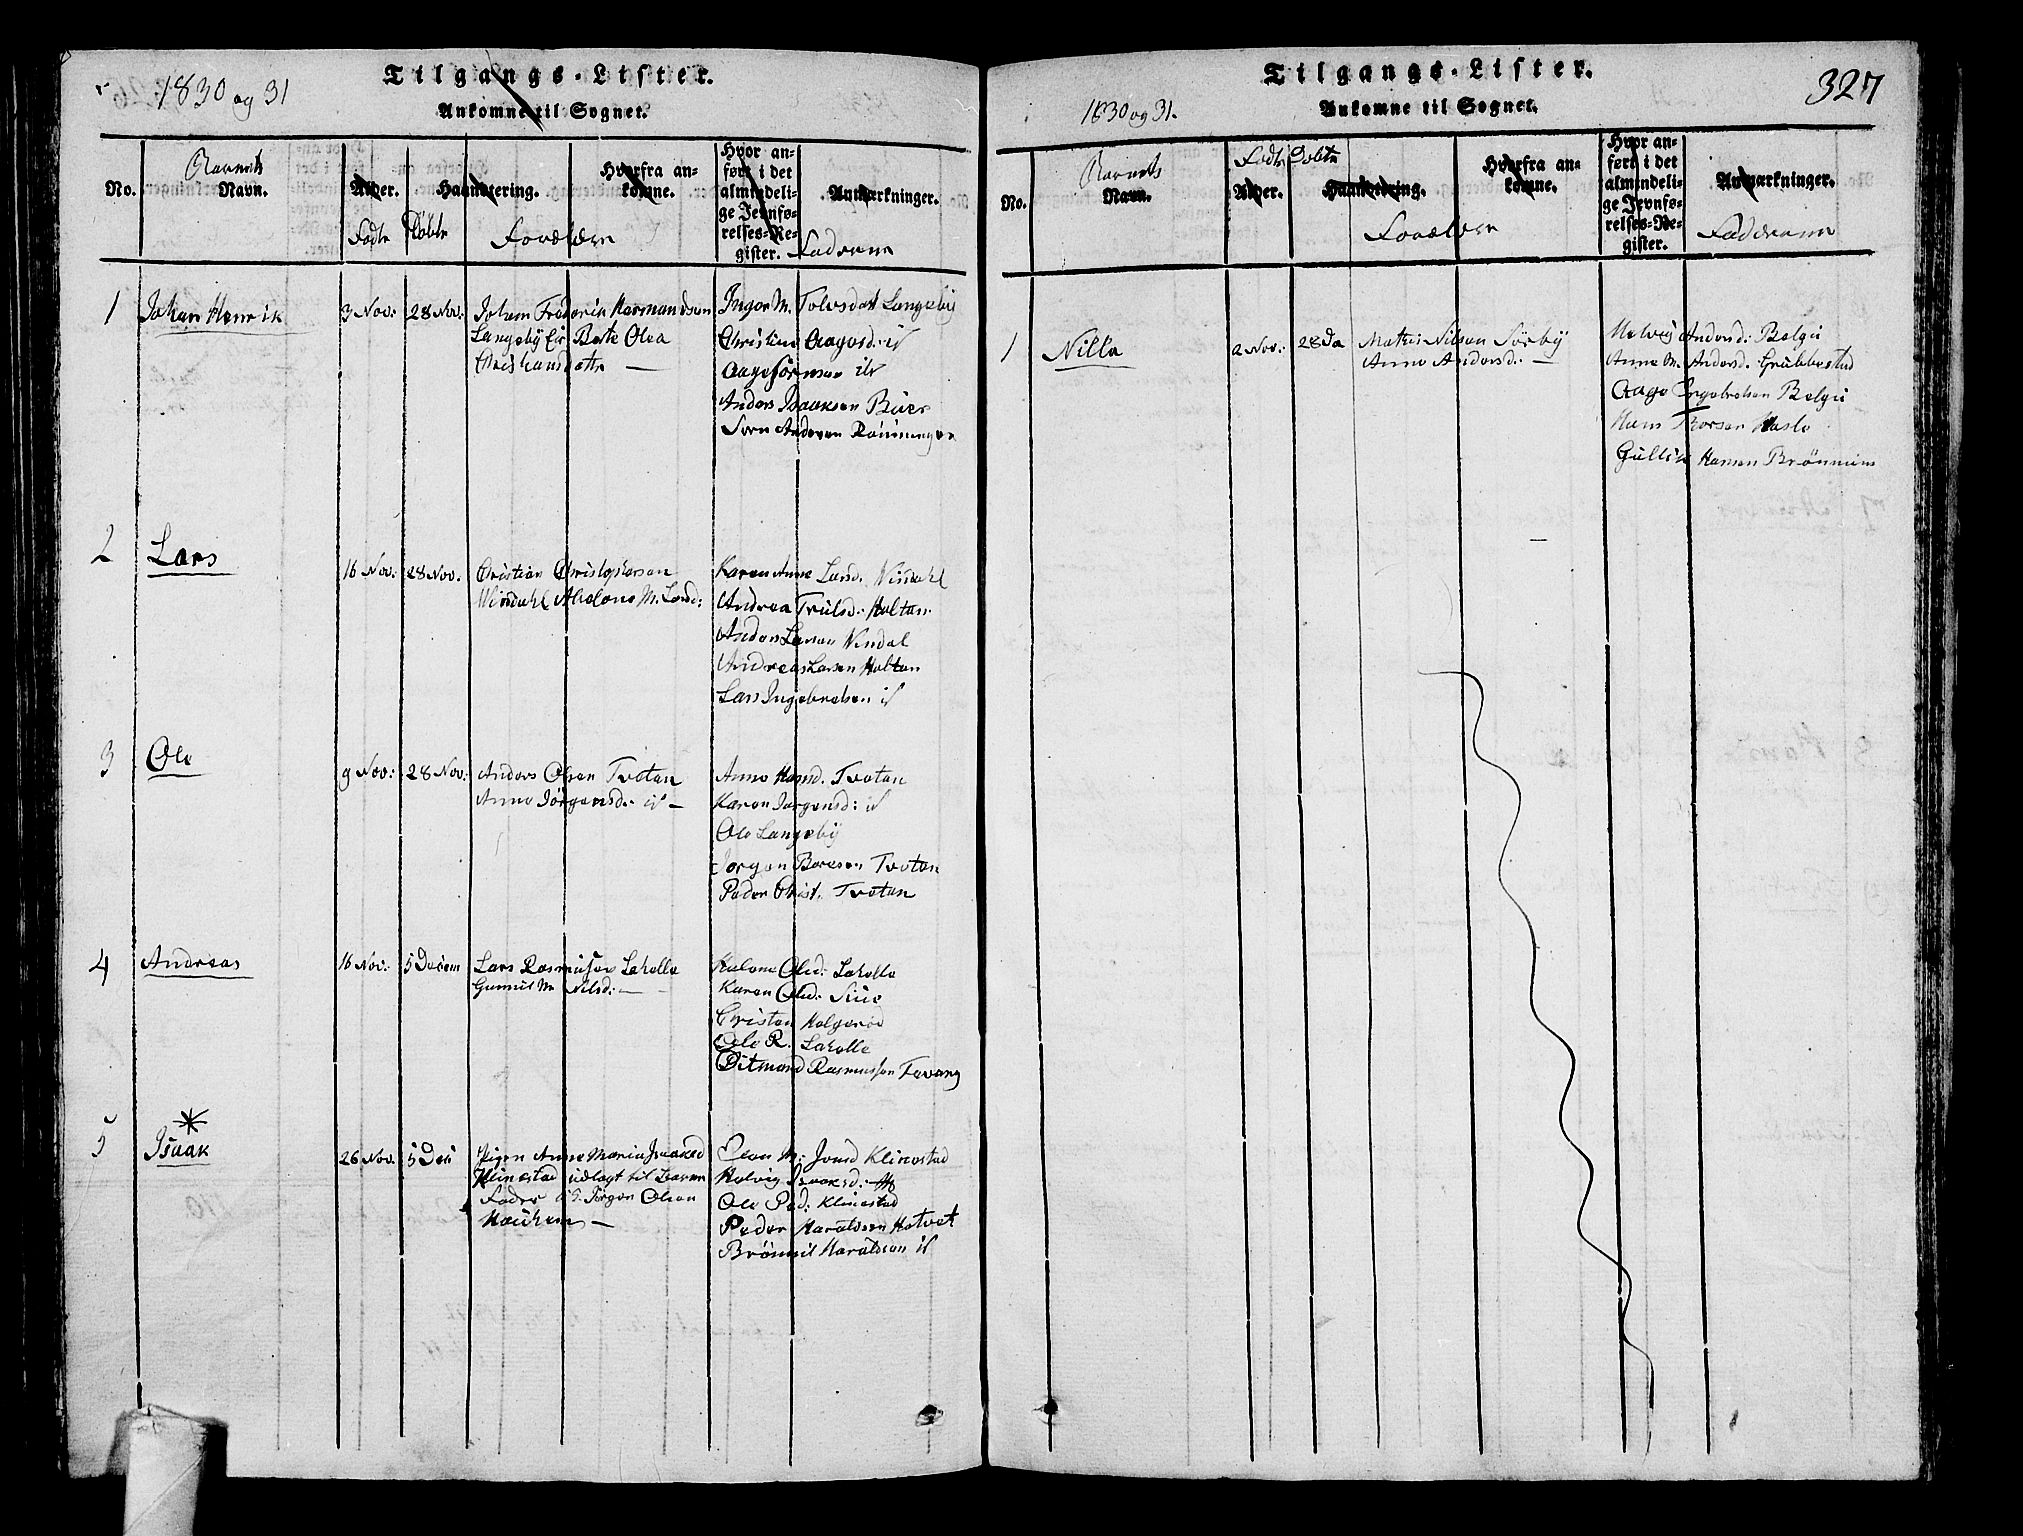 1830 og 31
Tilgangs-Lister.
Ankomne til Sognet.
No.
Navn.
Alder.
Haandtering.
Hvorfra an-
komne.
Hvor an-
ført i det
almindeli-
ge Jevnfø-
relses-Re-
gister.
Anmærkninger.
Barnets
Fødte Døbte
Forældre
Faddrene
1 Johan Henrik 3 Nov: 28 Nov: Johan Frederik Hermandsen
Langeby Eir. Berte Olea
Christiansdatter
Inger M. Tolvsdat Langeby
Christine Aagesd: id
Anders Isaaksen Buer
Sørn Andersen
2 Lars 16 Nov: 28 Nov. Christian Christophersen
Vindahl Abelone M. Larsd:
Karen Anne Larsd. Vindahl
Andrea Trulsd: Holtan
Anders Larsen Vindal
Andreas Larsen Holtan
Lars Ingebretsen id
3 Ole 9 Nov: 28 Nov: Anders Olsen Trotan
Anne Jörgensd: id
Anne Hansd. Trotan
Karen Jørgensd: id
Ole Langeby
Jørgen Boresen Trotan
Peder Christ. Trotan
4 Andreas 16 Nov: 5 Decem Lars Rasmussen Lakolle
Gunnil M Nilsd:
Helene Olsd: Lakolle
Karen Olsd: Suue
Christen Holgerød
Ole R. Lakolle
Ditmand Rasmussen Tovang
5 Isaak 26 Nov. 5 Dec Pigen Anne Maria Isaaksd
Klinestad udlagt til Barne
Fader Jørgen Olsen
Houkem
Elen M: Jonsd Klinestad
Helvig Isaaksd:
Ole Ped: Klinestad
Peder Haraldsen Hotvet
Brønnil Haraldsen id
327
1830 og 31.
Tilgangs-Lister.
Ankomne til Sognet.
No.
Navn.
Alder.
Haandtering.
Hvorfra an-
komne.
Hvor an-
ført i det
almindeli-
ge Jevnfø-
relses-Re-
gister.
Anmærkninger.
Barnets
Fødte Døbte
Forældre
Fadderene
1 Nille 2 Nov: 28 Do Mathis Nilsen Sørby
Anne Andersd:
Helvig Andersd: Bolgii
Anne M. Andersd. Grubbestad
Aage Ingebretsen Bolgii
Hans Thorsen Hasle
Gullik Hansen